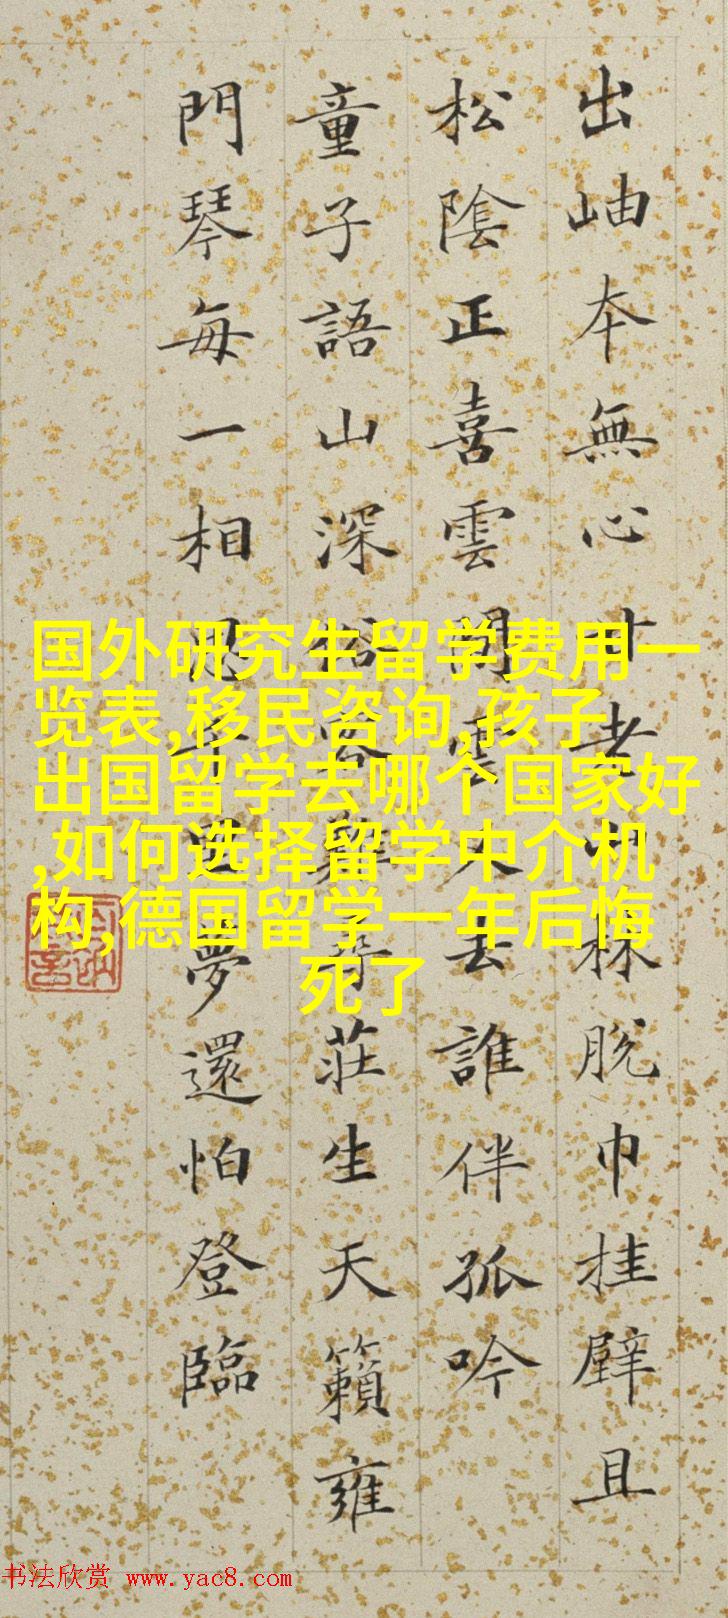 出岫本無心老林脫巾挂壁且
松陰正喜雲閒雲去誰伴孤吟
童子語山深莊生天籟雍
門琴每一相思夢還怕登臨
国外研究生留学费用一
览表,移民咨询,孩子
出国留学去哪个国家好
,如何选择留学中介机
构,德国留学一年后悔
死了
书法欣赏 www.yac8.com